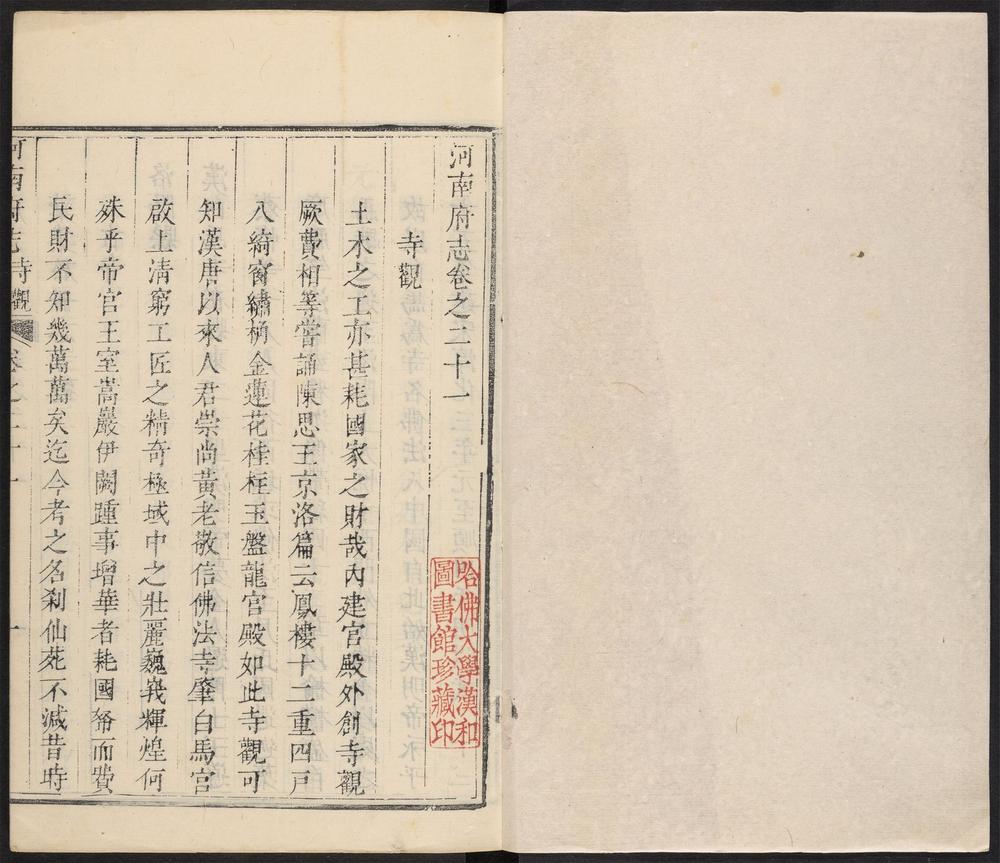 河南府志卷之二十一
寺觀
土木之工亦甚耗國家之財哉內建宮殿外創寺觀
厥費相等嘗誦陳思王京洛篇云鳳樓十二重四戶
八綺窗繡桷金蓮花桂柱玉盤龍宮殿如此寺觀可
知漢唐以來人君崇尚黃老敬信佛法寺肇白馬宮
啟上清窮工匠之精奇極域中之壯麗巍峩輝煌何
殊乎帝宮王室嵩巖伊闕踵事增華者耗國帑而費
民財不知幾萬萬矣迄今考之名剎仙苑不減昔時
河南府志 寺觀 卷之二十一 一
哈佛大學漢和
圖書館珍藏印